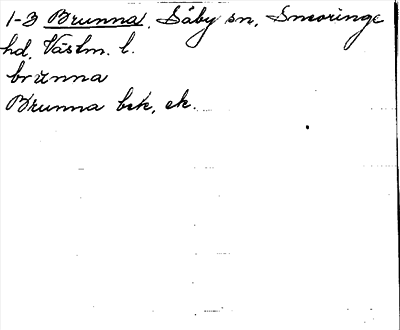 1-3 Brunna, Säby sn, Snevringe
hd, Västm. l.
brunna
Brunna bek, ek.